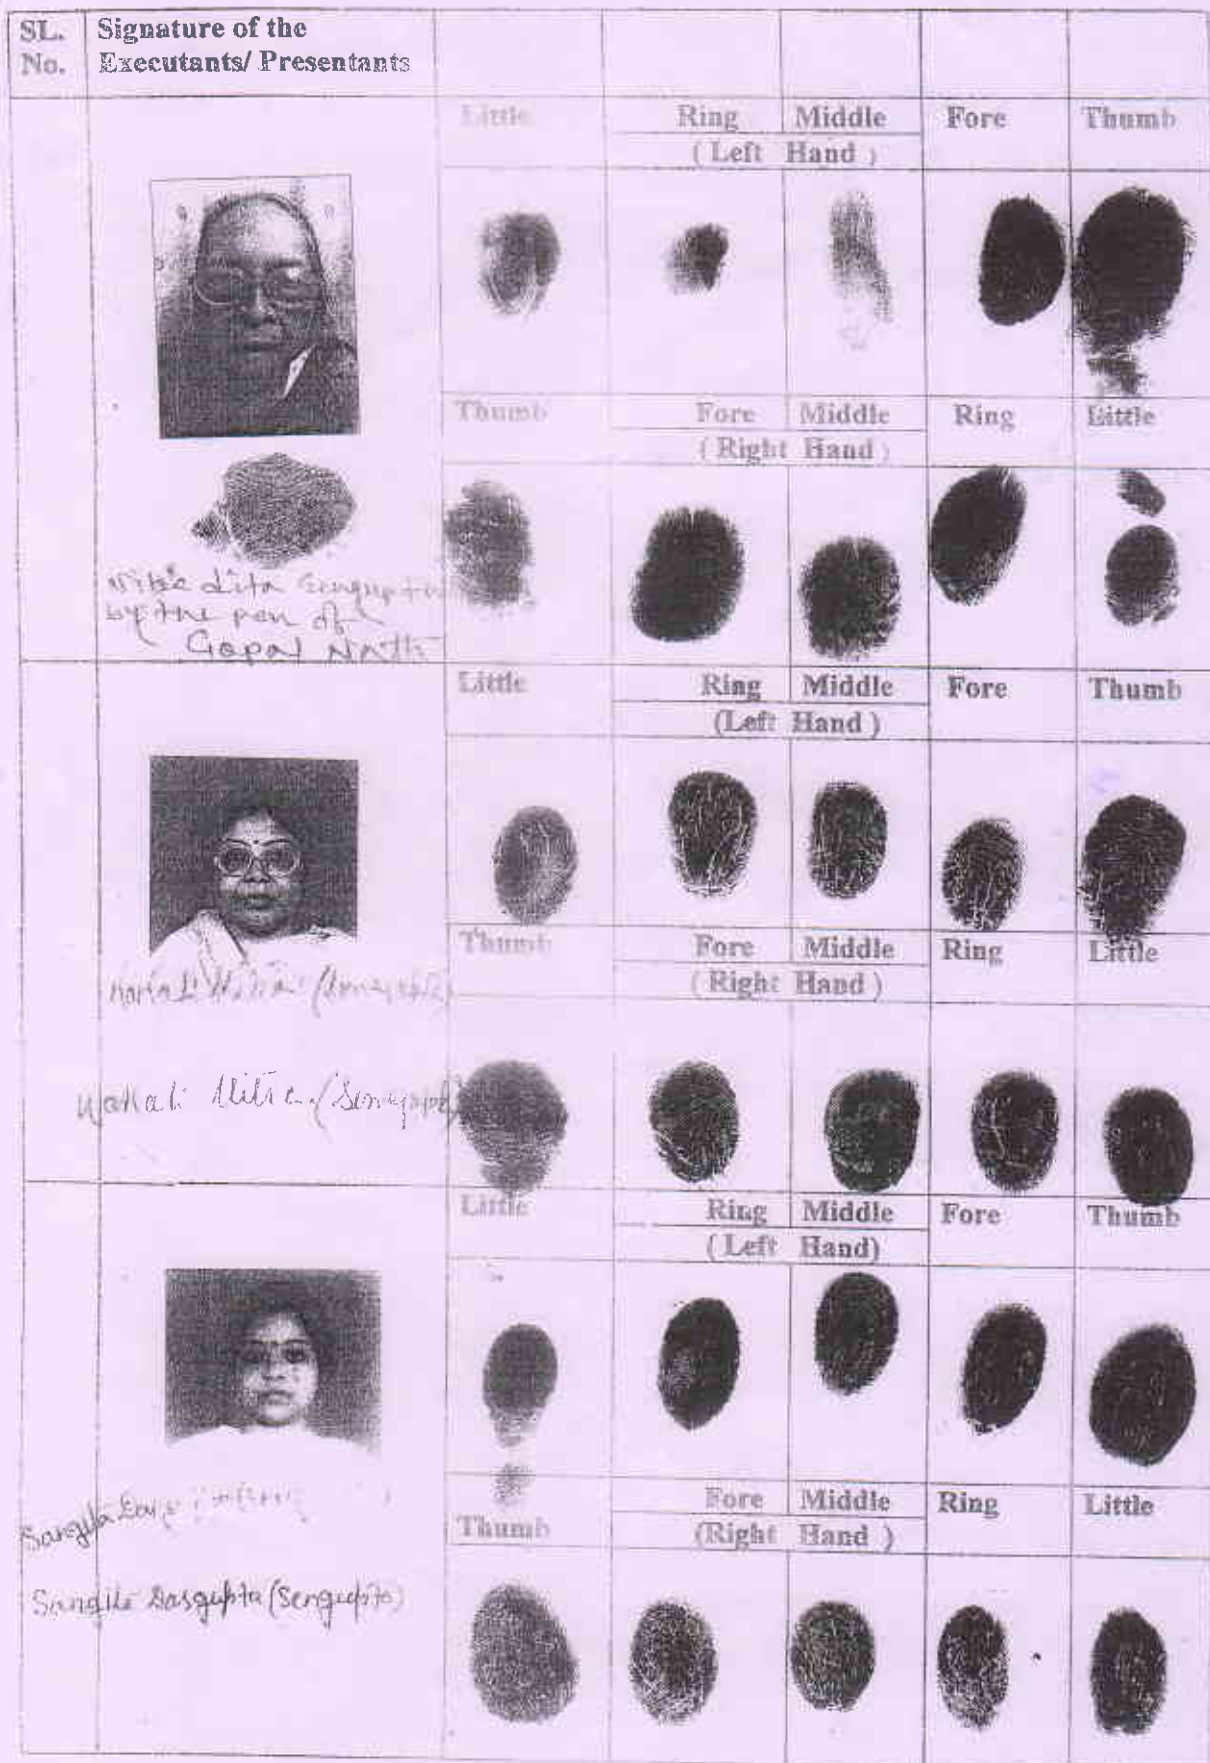 SL. No.
Signature of the Executants/ Presentants
Little Ring Middle Fore Thumb
( Left Hand )
Thumb Fore Middle Ring Little
( Right Hand )
Sengupta
by the pen of
Gopal Nath
Little Ring Middle Fore Thumb
(Left Hand )
Thumb Fore Middle Ring Little
( Right Hand )
Little Ring Middle Fore Thumb
( Left Hand)
Fore Middle Ring Little
Thumb (Right Hand )
Dasgupta (Sengupta)